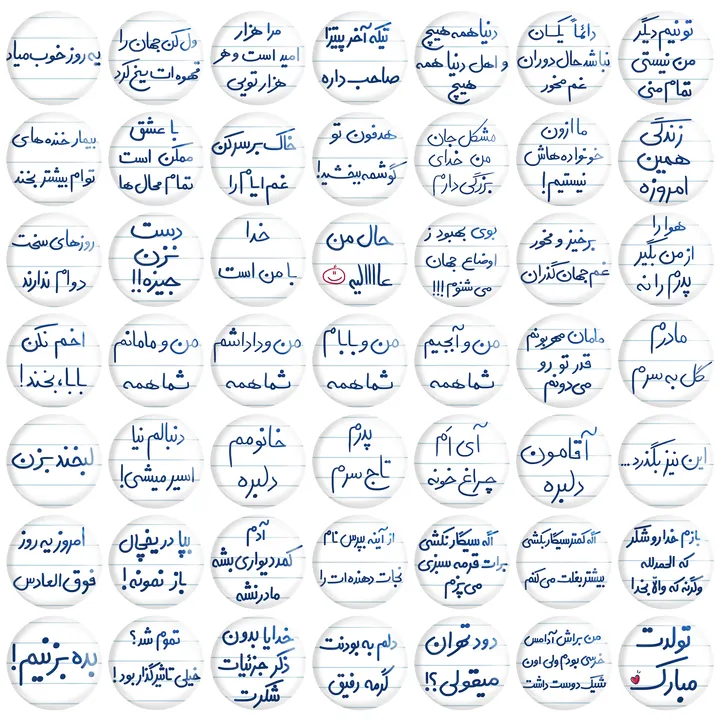 تونیم دیگر
من نیستی
تمام منی
دائماً یکسان
نباشد حال دوران
غم مخور
دنیا همه هیچ
و اهل دنیا همه
هیچ
تیکه آخر پیتزا
صاحب داره
مرا هزار
امید است و هر
هزار تویی
ول کن جهان را
قهوه ات یخ کرد
یه روز خوب میاد
زندگی
همین
امروزه
ما ازون
خونواده هاش
نیستیم!
مشکل جان
من خدای
بزرگی دارم
هدفون تو
گوشمه ببخشید!
خاک بر سر کن
غم ایام را
با عشق
ممکن است
تمام محال ها
بیمار خنده های
توام بیشتر بخند
هوا را
از من بگیر
پدرم را نه
برخیز و مخور
غم جهان گذران
بوی بهبود ز
اوضاع جهان
می شنوم!!!
حال من
عاااالیه
خدا
با من است
دست
نزن
جیزه!!
روزهای سخت
دوام ندارند
مادرم
گل به سرم
مامان مهربونم
قدر تو رو
می‌دونم
من و آبجیم
شما همه
من و بابام
شما همه
من و داداشم
شما همه
من و مامانم
شما همه
اخم نکن
بابا، بخند!
این نیز بگذرد...
آقامون
دلبره
آی اَم
چراغ خونه
پدرم
تاج سرم
خانومم
دلبره
دنبالم نیا
اسیر میشی!
لبخند بزن
بازم خدا رو شکر
که الحمدلله
وگرنه که والا بخدا
اگه کمتر سیگار بکشی
بیشتر بغلت می کنم
اگه سیگار نکشی
برات قرمه سبزی
می پزم
از آینه بپرس نام
نجات دهنده ات را
آدم
کمد دیواری بشه
مادر نشه
بپا در یخچال
باز نمونه!
امروز یه روز
فوق العادس
تولدت
مبارک
من براش آدامس
خرسی بودم ولی اون
شیک دوست داشت
دود تهران
میقولی؟!
دلم به بودنت
گرمه رفیق
خدایا بدون
ذکر جزئیات
شکرت
تموم شد؟
خیلی تاثیرگذار بود!
بده بزنیم!